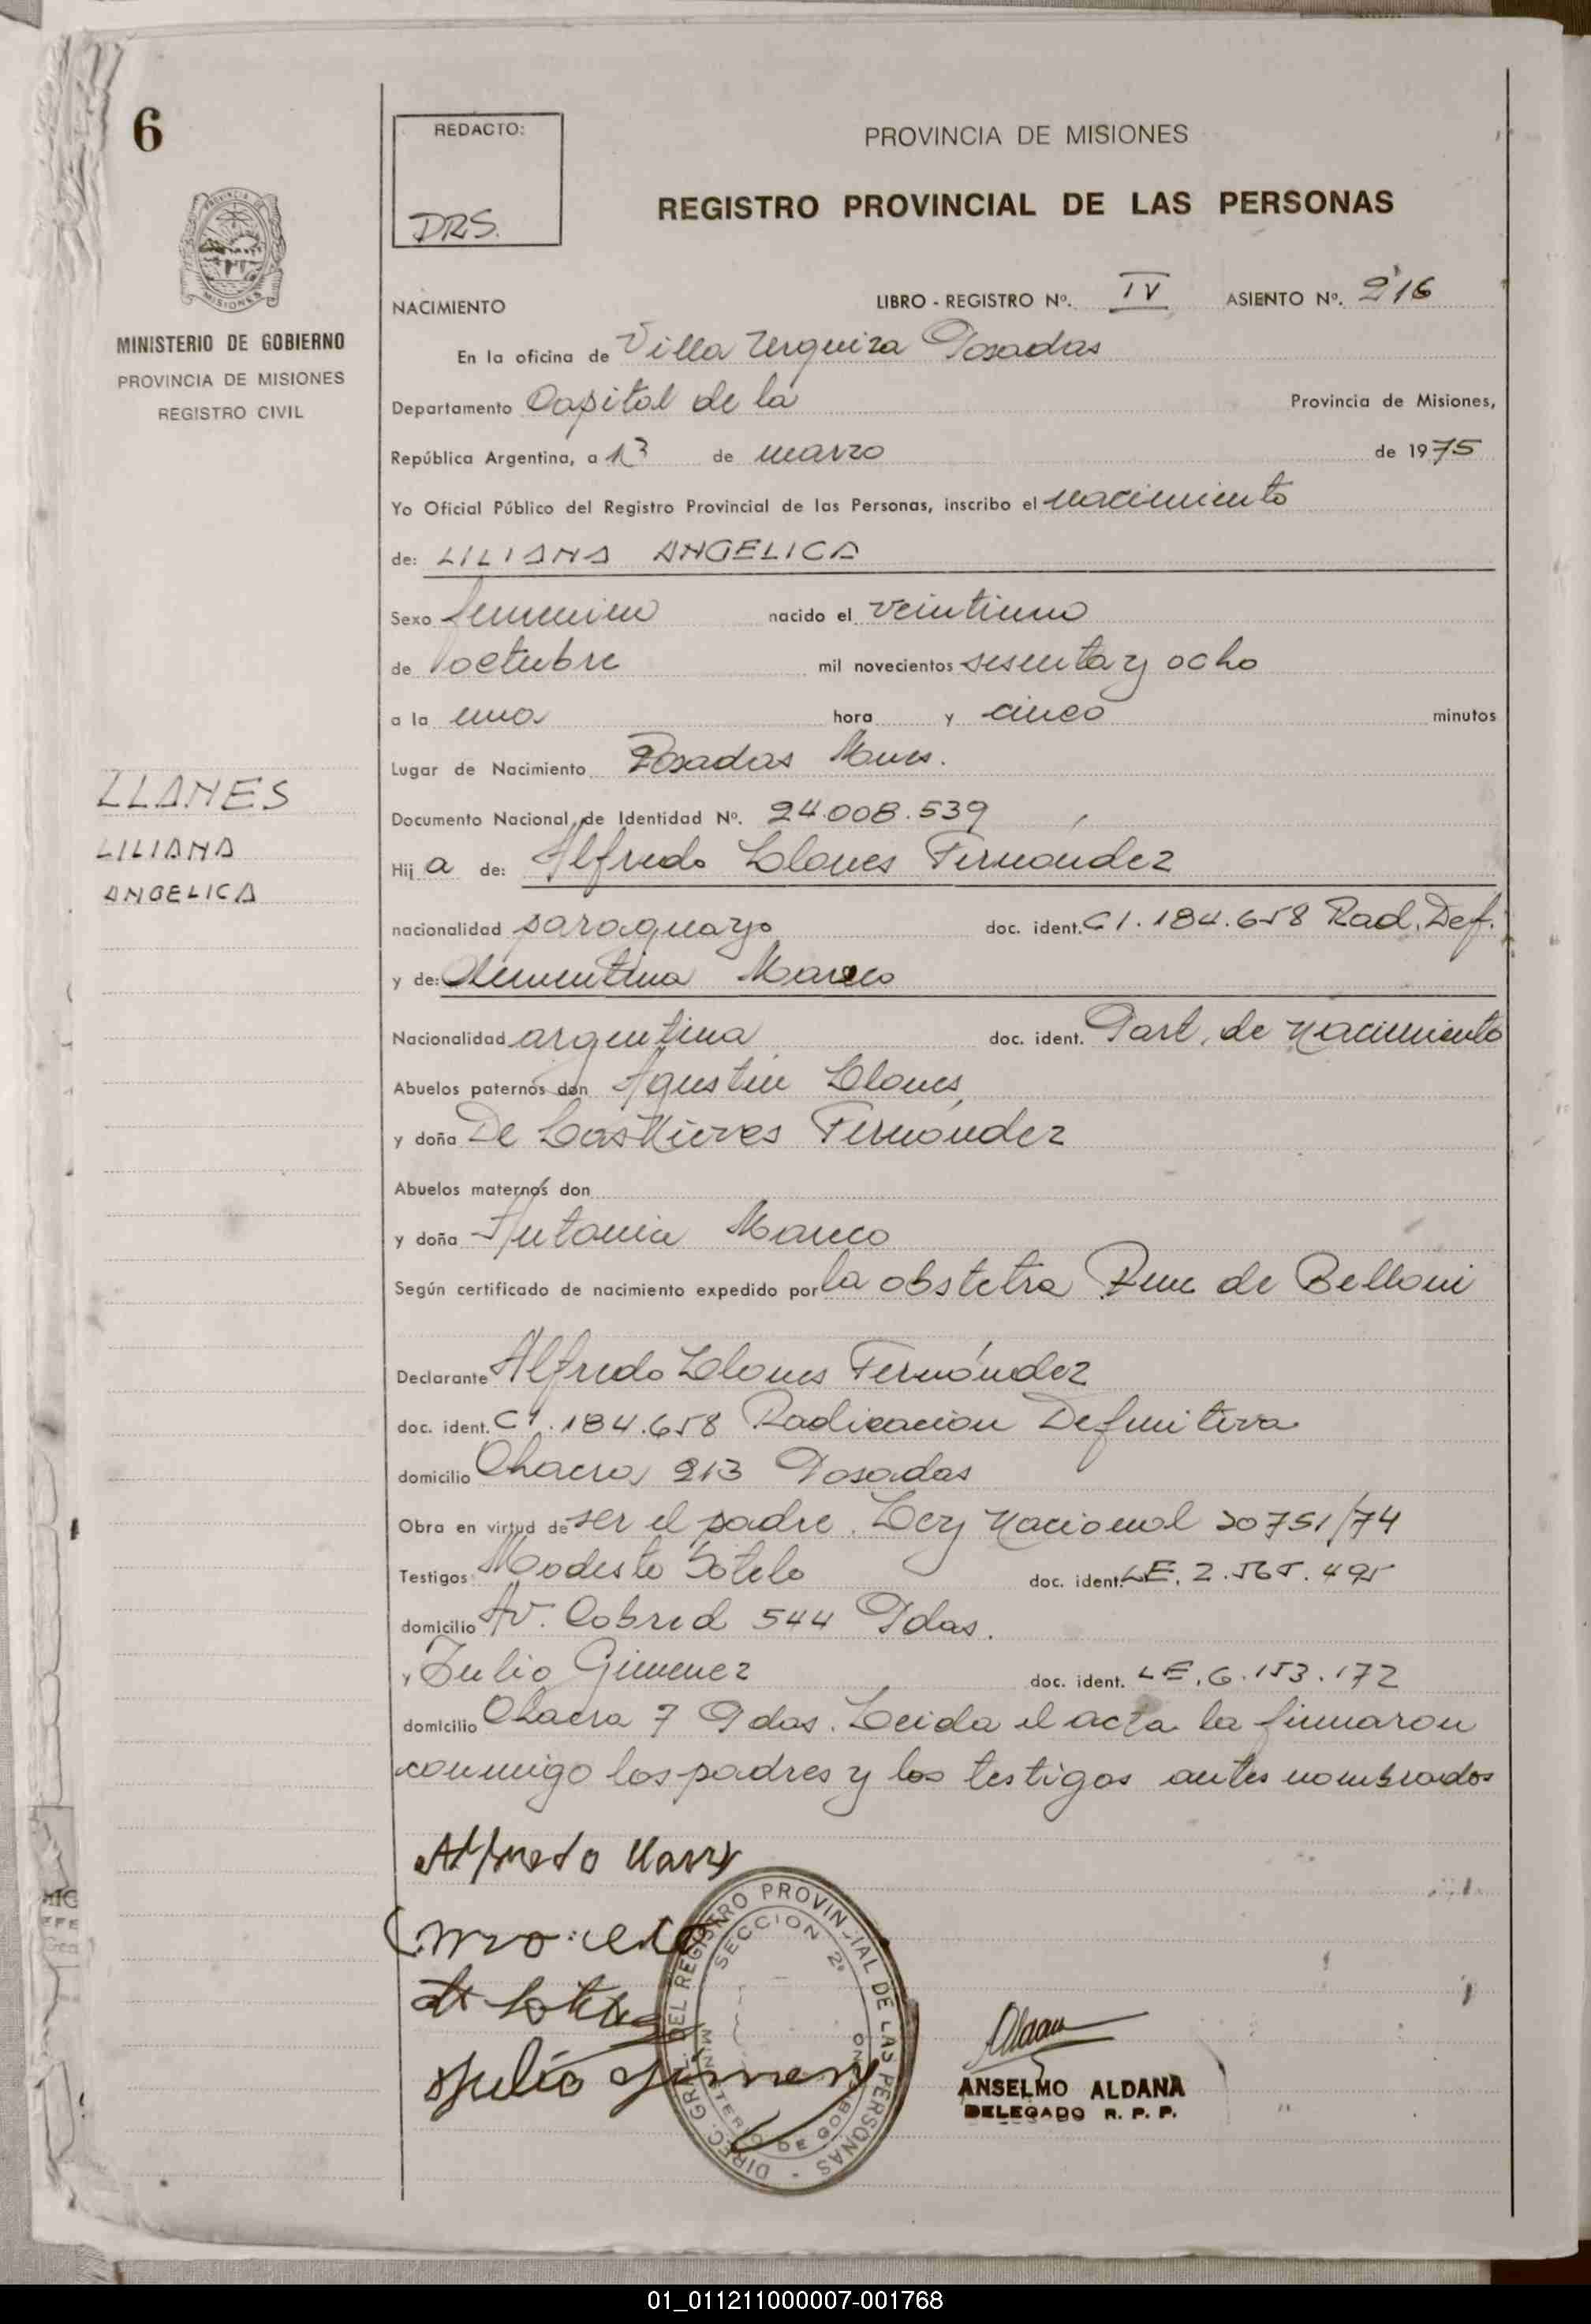 6
REDACTO:
DRS.
PROVINCIA DE MISIONES
REGISTRO PROVINCIAL DE LAS PERSONAS
MISIONES
MINISTERIO DE GOBIERNO
PROVINCIA DE MISIONES
REGISTRO CIVIL
NACIMIENTO LIBRO - REGISTRO Nº. IV ASIENTO Nº. 216
En la oficina de Villa Urquiza Posadas
Departamento Capital de la Provincia de Misiones,
República Argentina, a 13 de marzo de 1975
Yo Oficial Público del Registro Provincial de las Personas, inscribo el nacimiento
de: LILIANA ANGELICA
Sexo femenino nacido el veintiuno
de octubre mil novecientos sesenta y ocho
a la una hora y cinco minutos
Lugar de Nacimiento Posadas Mnes.
LLANES
LILIANA
ANGELICA
Documento Nacional de Identidad Nº. 24.008.539
Hij a de: Alfredo Llanes Fernández
nacionalidad paraguayo doc. ident. CI.184.658 Rad. Def.
y de: Clementina
Nacionalidad argentina doc. ident. Part. de nacimiento
Abuelos paternos don Agustin Llanes
y doña De Las Nieves Fernández
Abuelos maternos don
y doña Antonia
Según certificado de nacimiento expedido por la obstetra de Belloni
Declarante Alfredo Llanes Fernández
doc. ident. CI.184.658 Radicación Definitiva
domicilio Chacra 213 Posadas
Obra en virtud de ser el padre. Ley Nacional 20751/74
Testigos: Modesto Sotelo doc. ident. LE. 2.565.495
domicilio Av. Cabred 544 Pdas.
y Julio Gimenez doc. ident. LE.6.153.172
domicilio Chacra 7 Pdas. Leida el acta la firmaron
conmigo los padres y los testigos antes nombrados
Alfredo Llanes
Julio Gimenez
DIREC. GRAL. DEL REGISTRO PROVINCIAL DE LAS PERSONAS -
SECCION 2ª
MINISTERIO DE GOBIERNO
ANSELMO ALDANA
DELEGADO R. P. P.
01_011211000007-001768